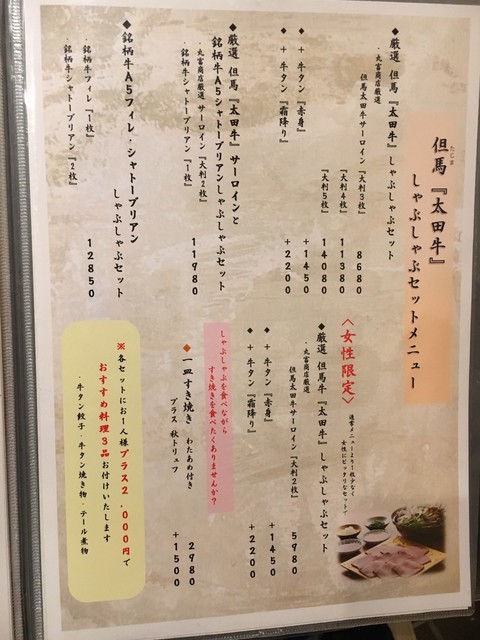 たじま
但馬『太田牛』
しゃぶしゃぶセットメニュー
◆厳選 但馬『太田牛』しゃぶしゃぶセット
・丸富商店厳選
但馬太田牛サーロイン『大判3枚』 8680
『大判4枚』 11380
『大判5枚』 14080
◆+ 牛タン『赤身』 +1450
◆+ 牛タン『霜降り』 +2200
◆厳選 但馬『太田牛』サーロインと
銘柄牛A5シャトーブリアンしゃぶしゃぶセット
・丸富商店厳選 サーロイン『大判2枚』
・銘柄牛シャトーブリアン『1枚』 11980
◆銘柄牛A5フィレ・シャトーブリアン
しゃぶしゃぶセット
・銘柄牛フィレ『1枚』
・銘柄牛シャトーブリアン『2枚』 12850
〈女性限定〉
通常メニューより1枚少なく
女性にピッタリなセットです
◆厳選 但馬牛『太田牛』しゃぶしゃぶセット
・丸富商店厳選
但馬太田牛サーロイン『大判2枚』 5980
◆+ 牛タン『赤身』 +1450
◆+ 牛タン『霜降り』 +2200
しゃぶしゃぶを食べながら
すき焼きを食べたくありませんか?
◆一皿すき焼き わたあめ付き 2980
プラス 秋トリュフ +1500
※各セットにお1人様プラス2,000円で
おすすめ料理3品お付けいたします
・牛タン餃子・牛タン焼き物・テール煮物